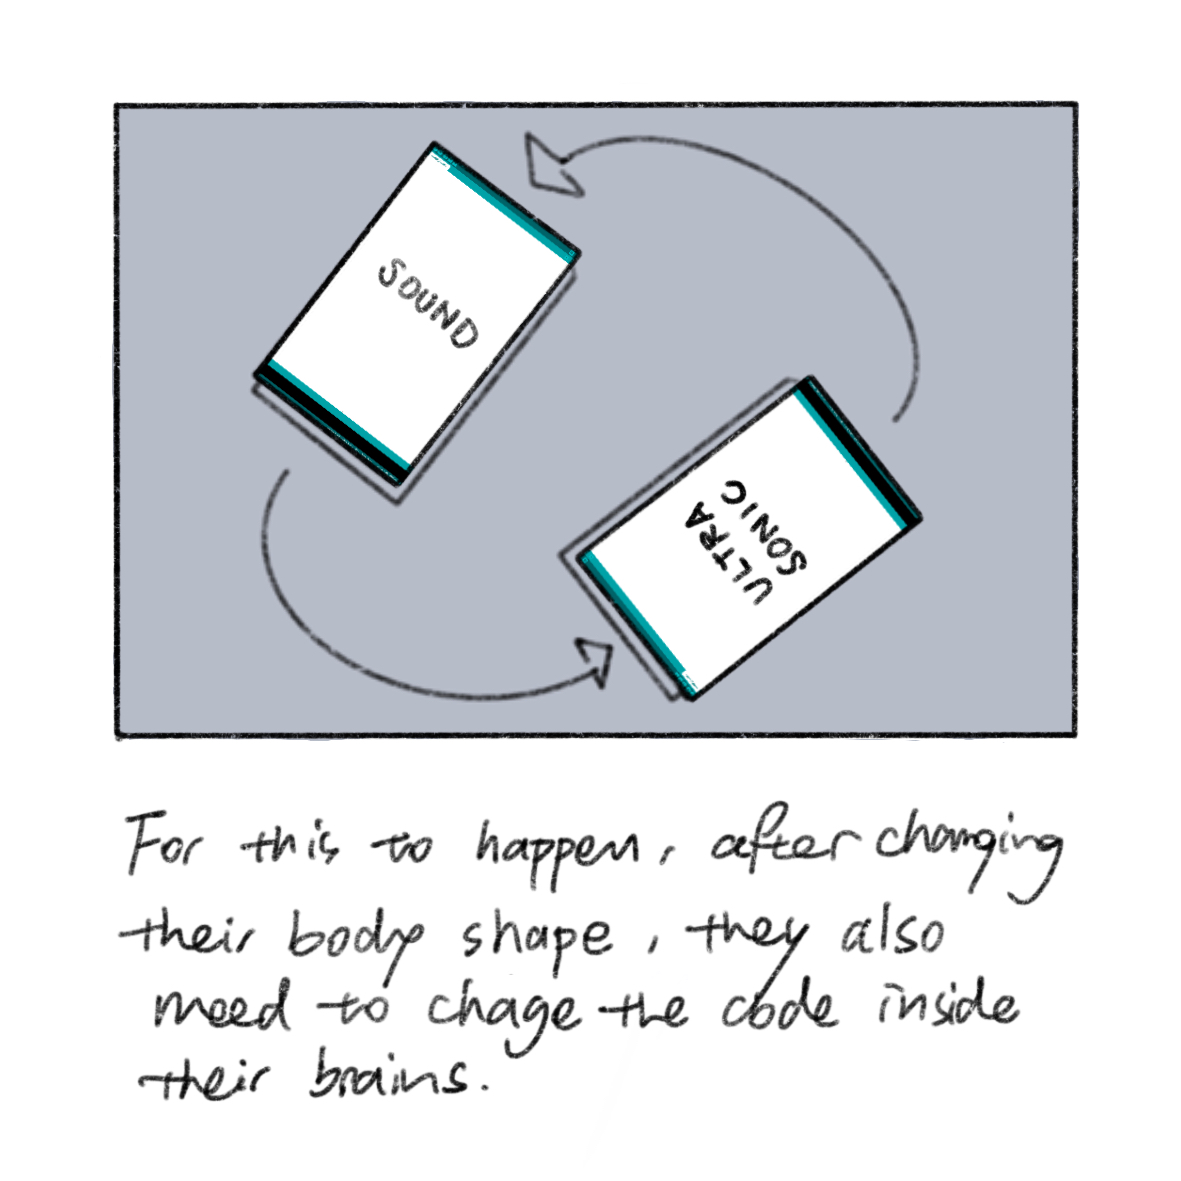 SOUND
ULTRA
SONIC
For this to happen, after changing
their body shape, they also
need to chage the code inside
their brains.